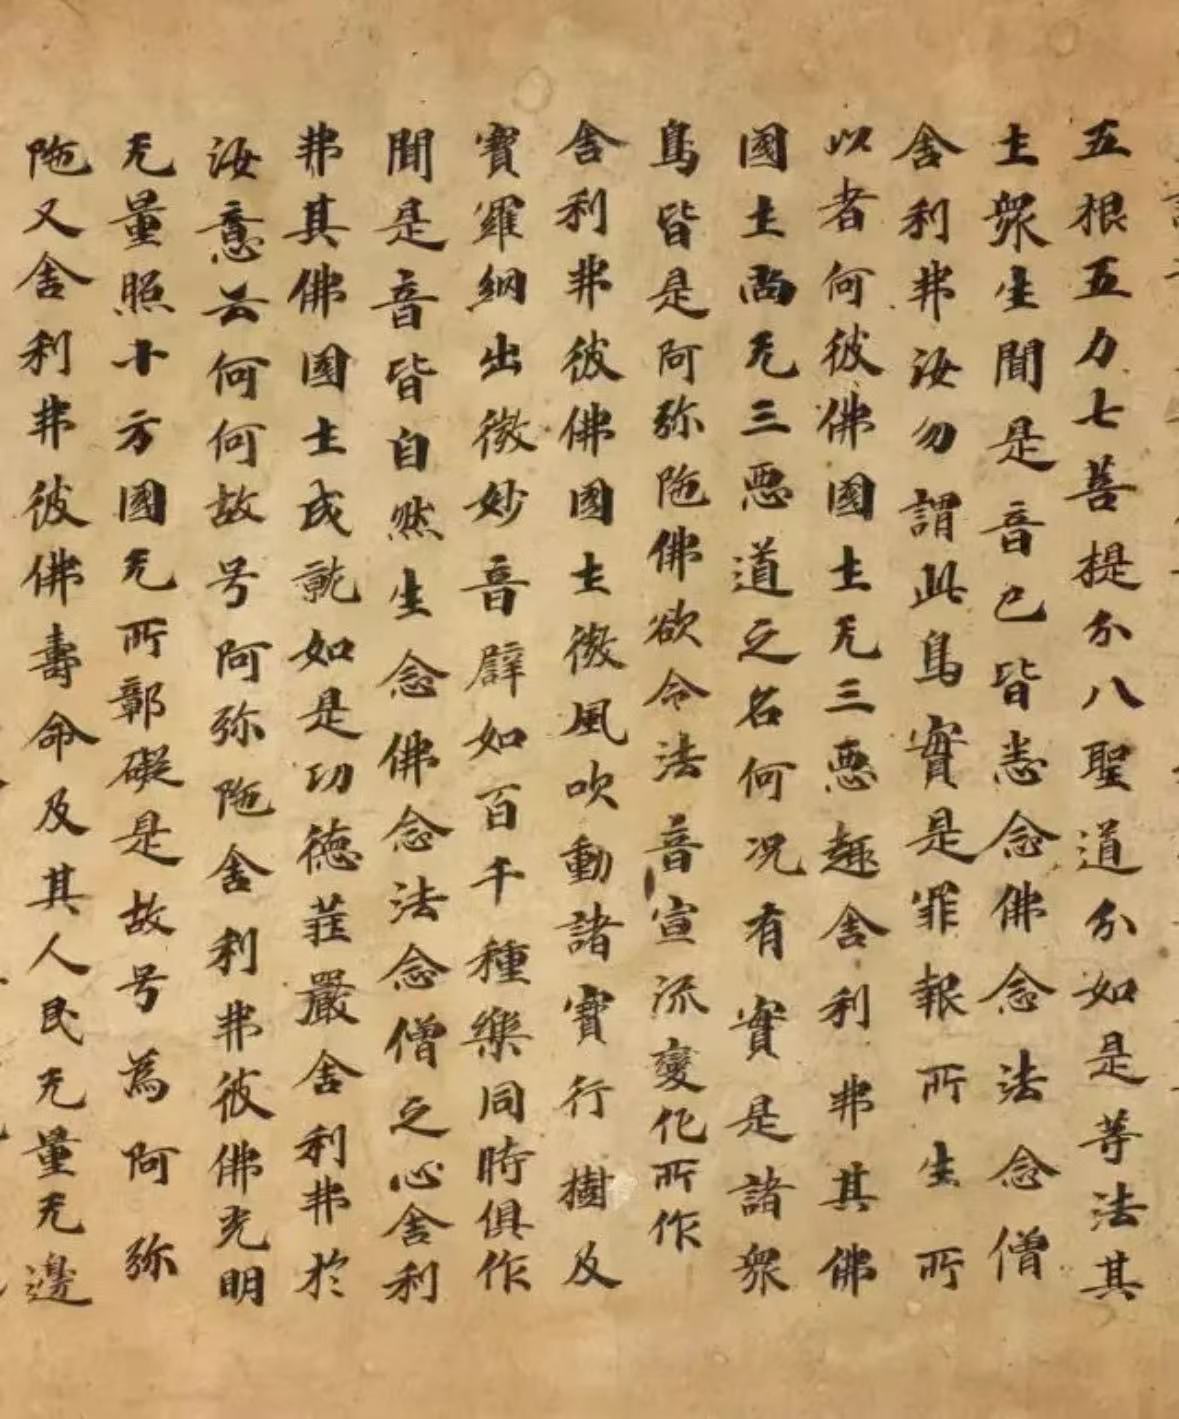 五根五力七菩提分八聖道分如是等法其
土衆生聞是音已皆悉念佛念法念僧
舍利弗汝勿謂此鳥實是罪報所生所
以者何彼佛國土无三惡趣舍利弗其佛
國土尚无三惡道之名何況有實是諸衆
鳥皆是阿弥陁佛欲令法音宣流變化所作
舍利弗彼佛國土微風吹動諸寶行樹及
寶羅網出微妙音辟如百千種樂同時俱作
聞是音皆自然生念佛念法念僧之心舍利
弗其佛國土成就如是功德莊嚴舍利弗於
汝意云何何故号阿弥陁舍利弗彼佛光明
无量照十方國无所鄣礙是故号為阿弥
陁又舍利弗彼佛壽命及其人民无量无邊